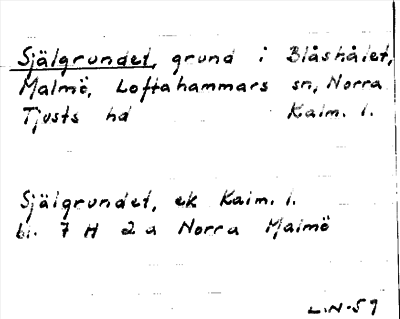 Själgrundet, grund i Blåshålet,
Malmö, Loftahammars sn, Norra
Tjusts hd Kalm. l.
Själgrundet, ek Kalm. l.
bl. 7 H 2 a Norra Malmö
L.N-59